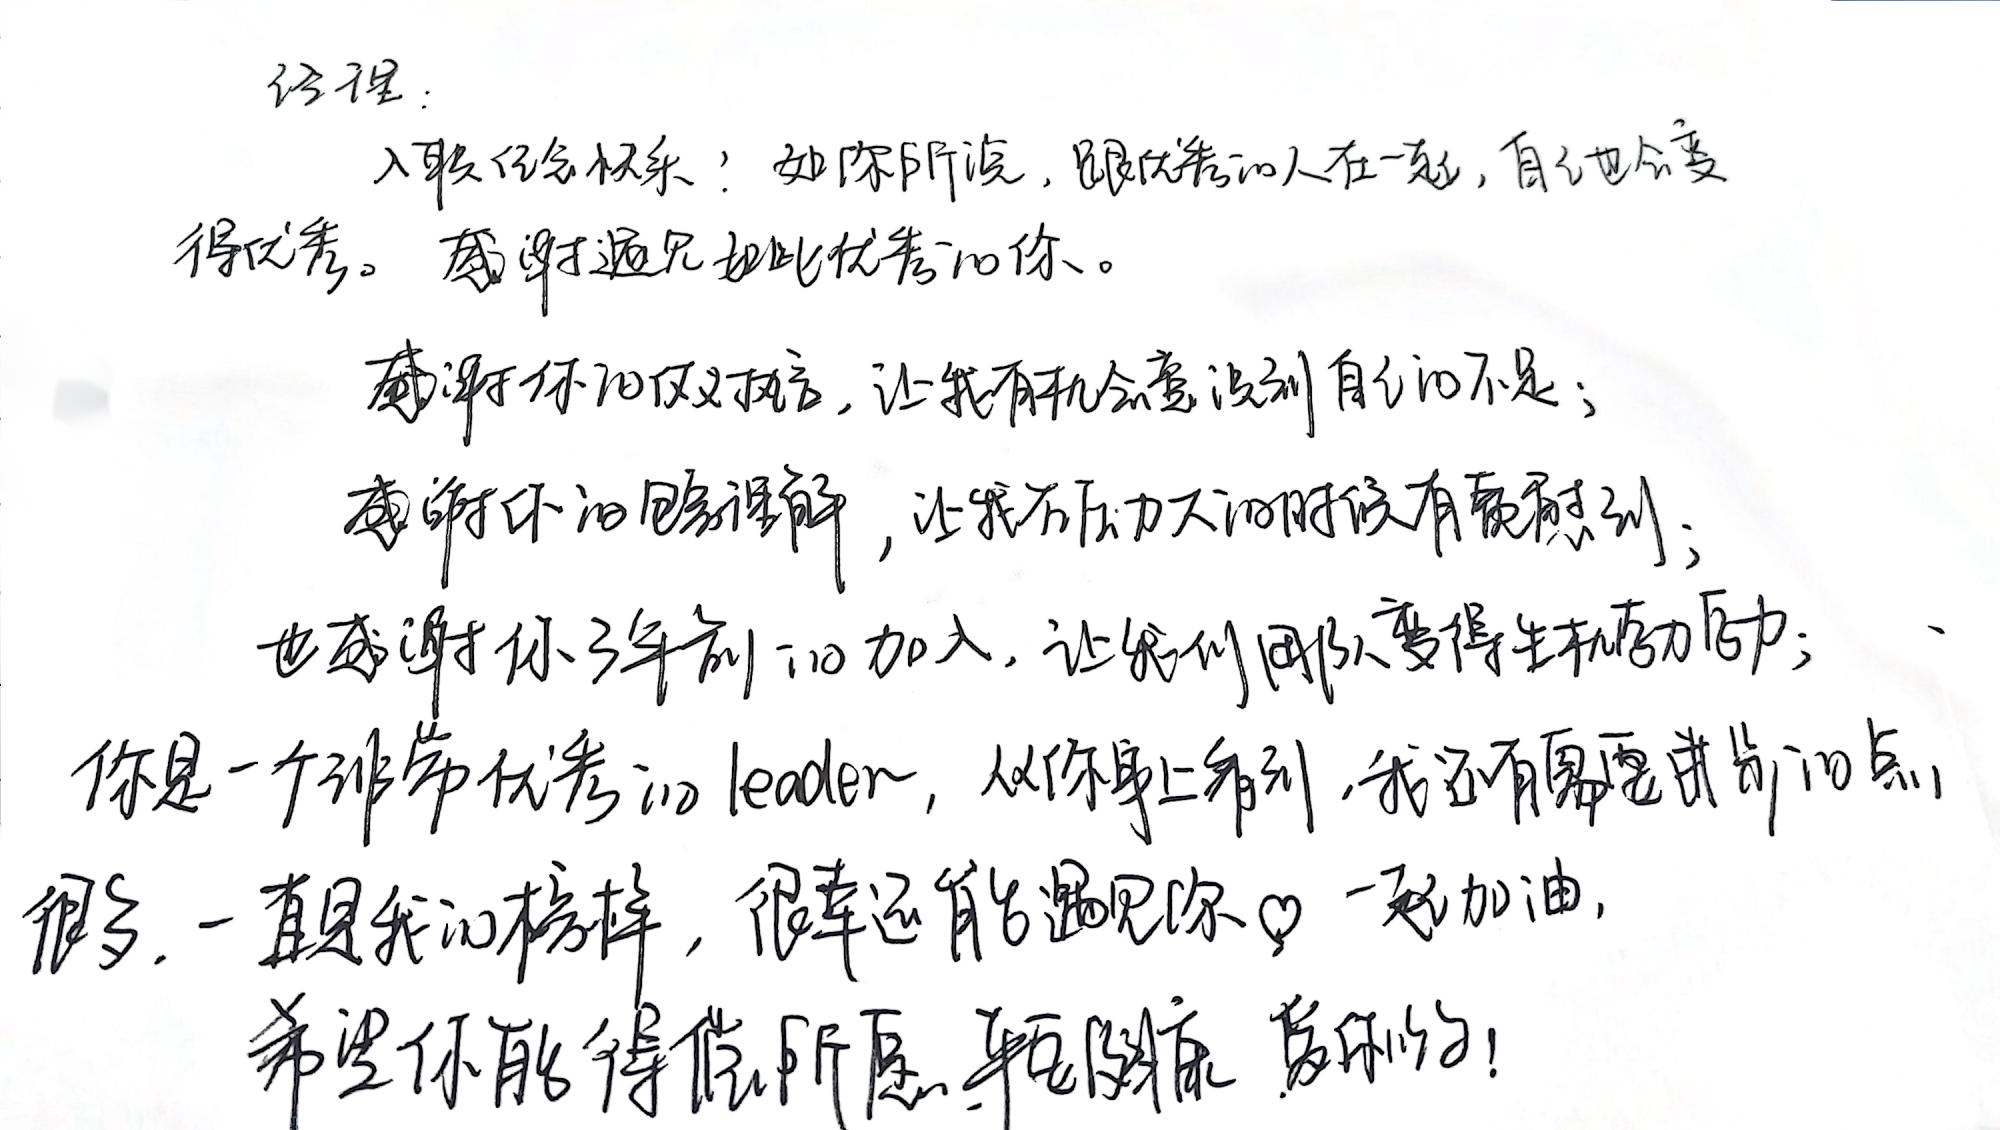 经理：
入职纪念快乐！如你所说，跟优秀的人在一起，自己也会变
得优秀。感谢遇见如此优秀的你。
感谢你的仗义执言，让我有机会意识到自己的不足；
感谢你的宽容理解，让我在压力大的时候有被慰到；
也感谢你3年前的加入，让我们团队变得生机活力；
你是一个非常优秀的leader，从你身上看到，我还有需要进步的点，
很多，一直是我的榜样，很幸运能遇见你♡ 一起加油，
希望你能得偿所愿 爱你的！